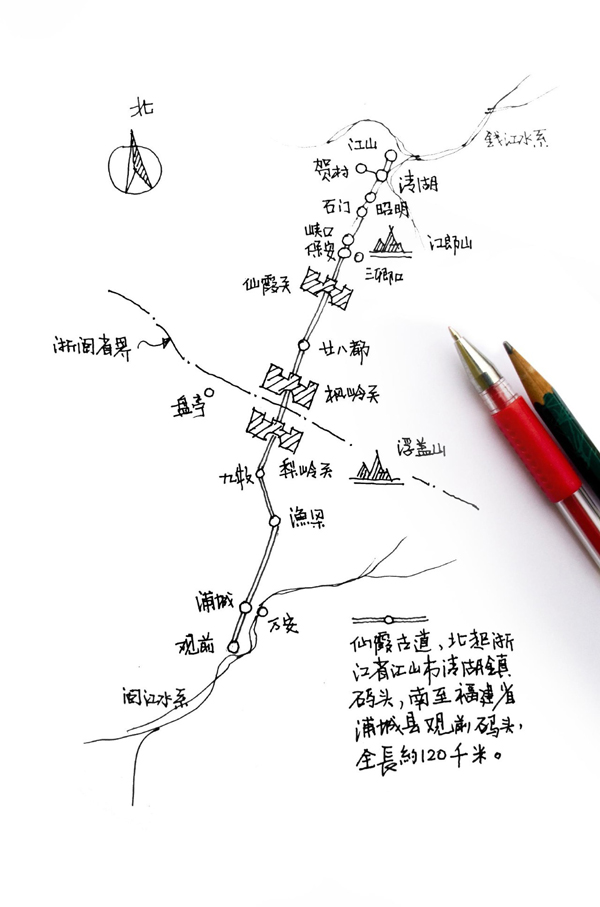 北
钱江水系
江山
贺村
清湖
石门
昭明
峡口
保安
江郎山
三卿口
仙霞关
浙闽省界
廿八都
枫岭关
盘亭
浮盖山
九牧
梨岭关
漁梁
浦城
万安
观前
闽江水系
仙霞古道，北起浙
江省江山市清湖鎮
码头，南至福建省
浦城县观前码头，
全長約120千米。